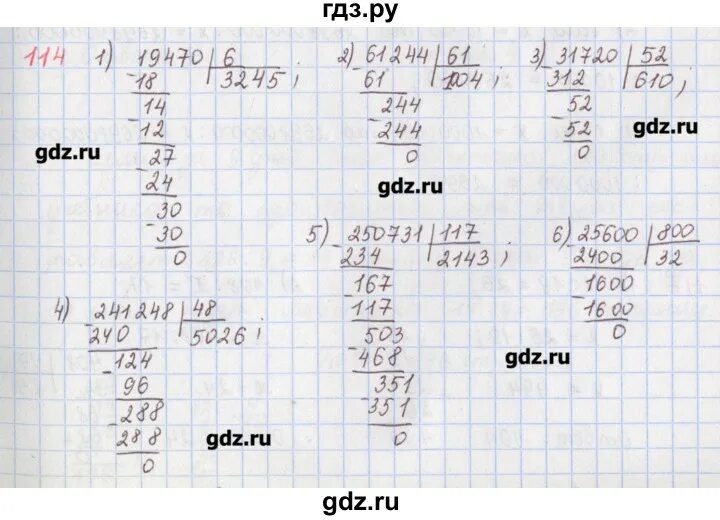 гдз.ру
114 1) 19470 | 6
3245;
18
14
12
27
24
30
30
0
2) 61244 | 61
1004;
61
244
244
0
3) 31720 | 52
610;
312
52
52
0
gdz.ru
gdz.ru
4) 241248 | 48
5026;
240
124
96
288
288
0
5) 250731 | 117
2143;
234
167
117
503
468
351
351
0
6) 25600 | 800
32
2400
1600
1600
0
gdz.ru
gdz.ru
gdz.ru